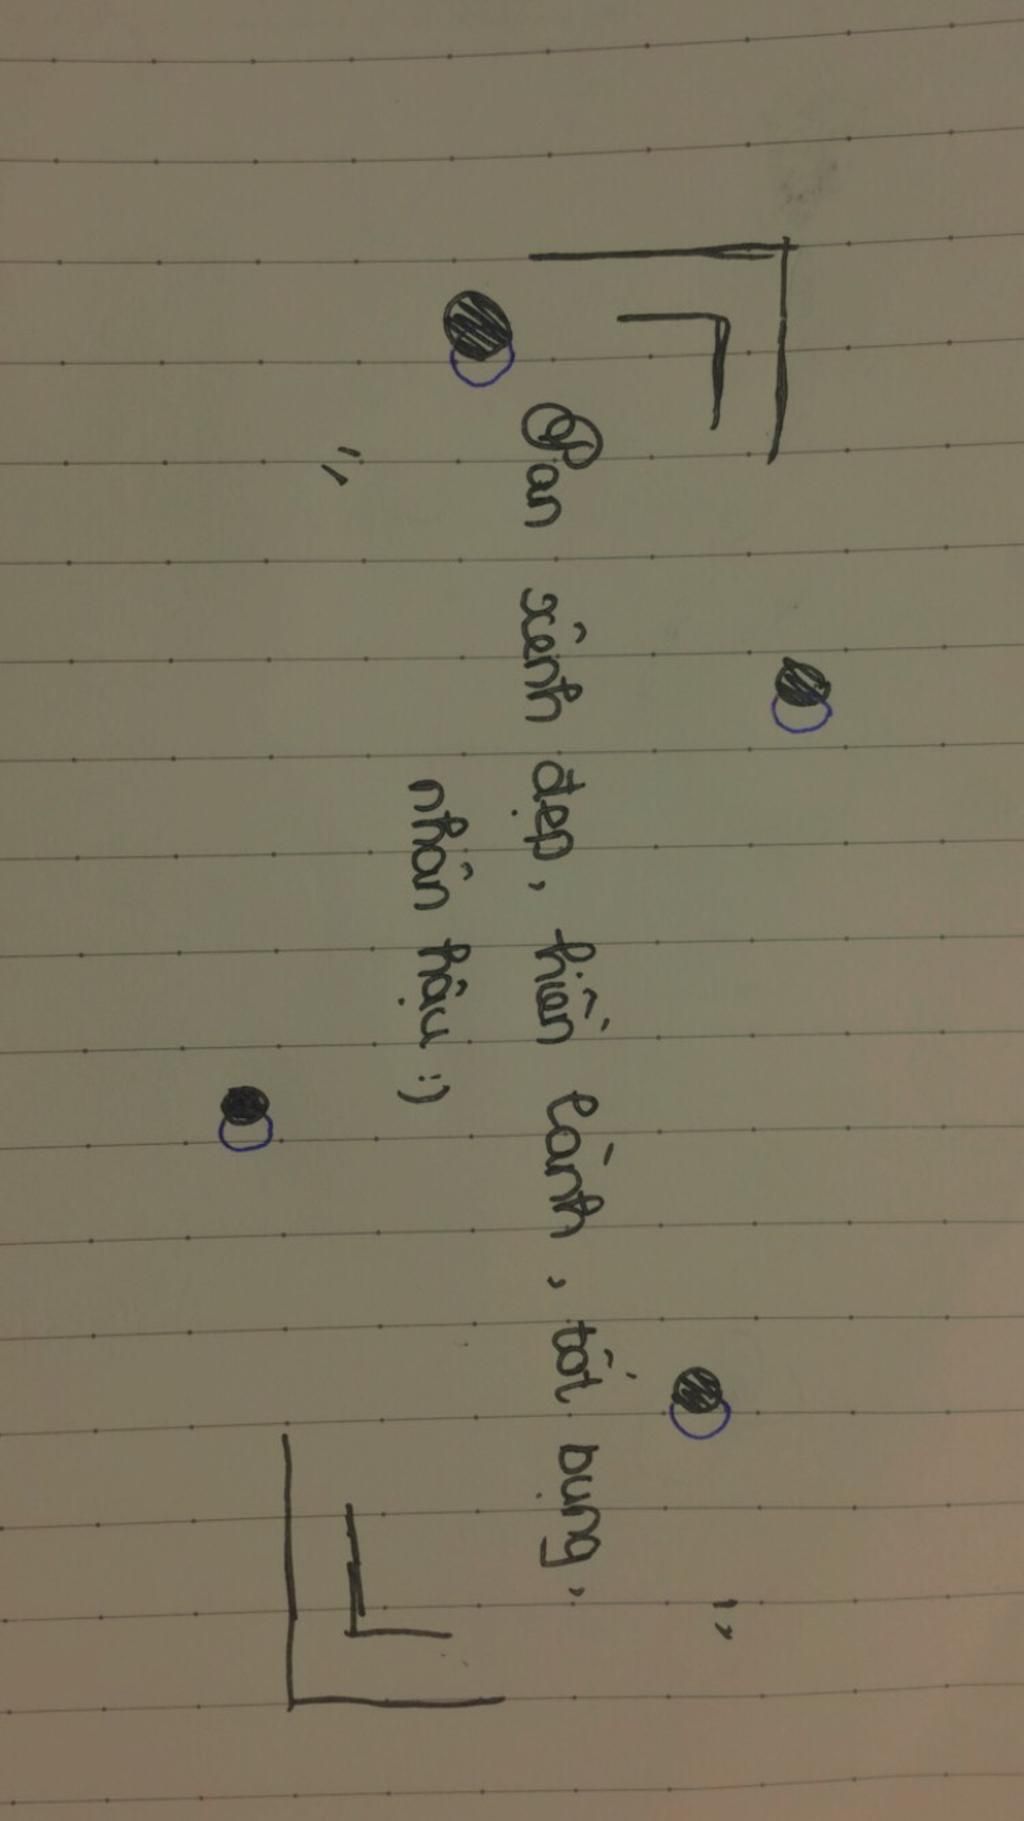 Pan xênh đẹp, hiền lành, tốt bụng,
nhân hậu :)